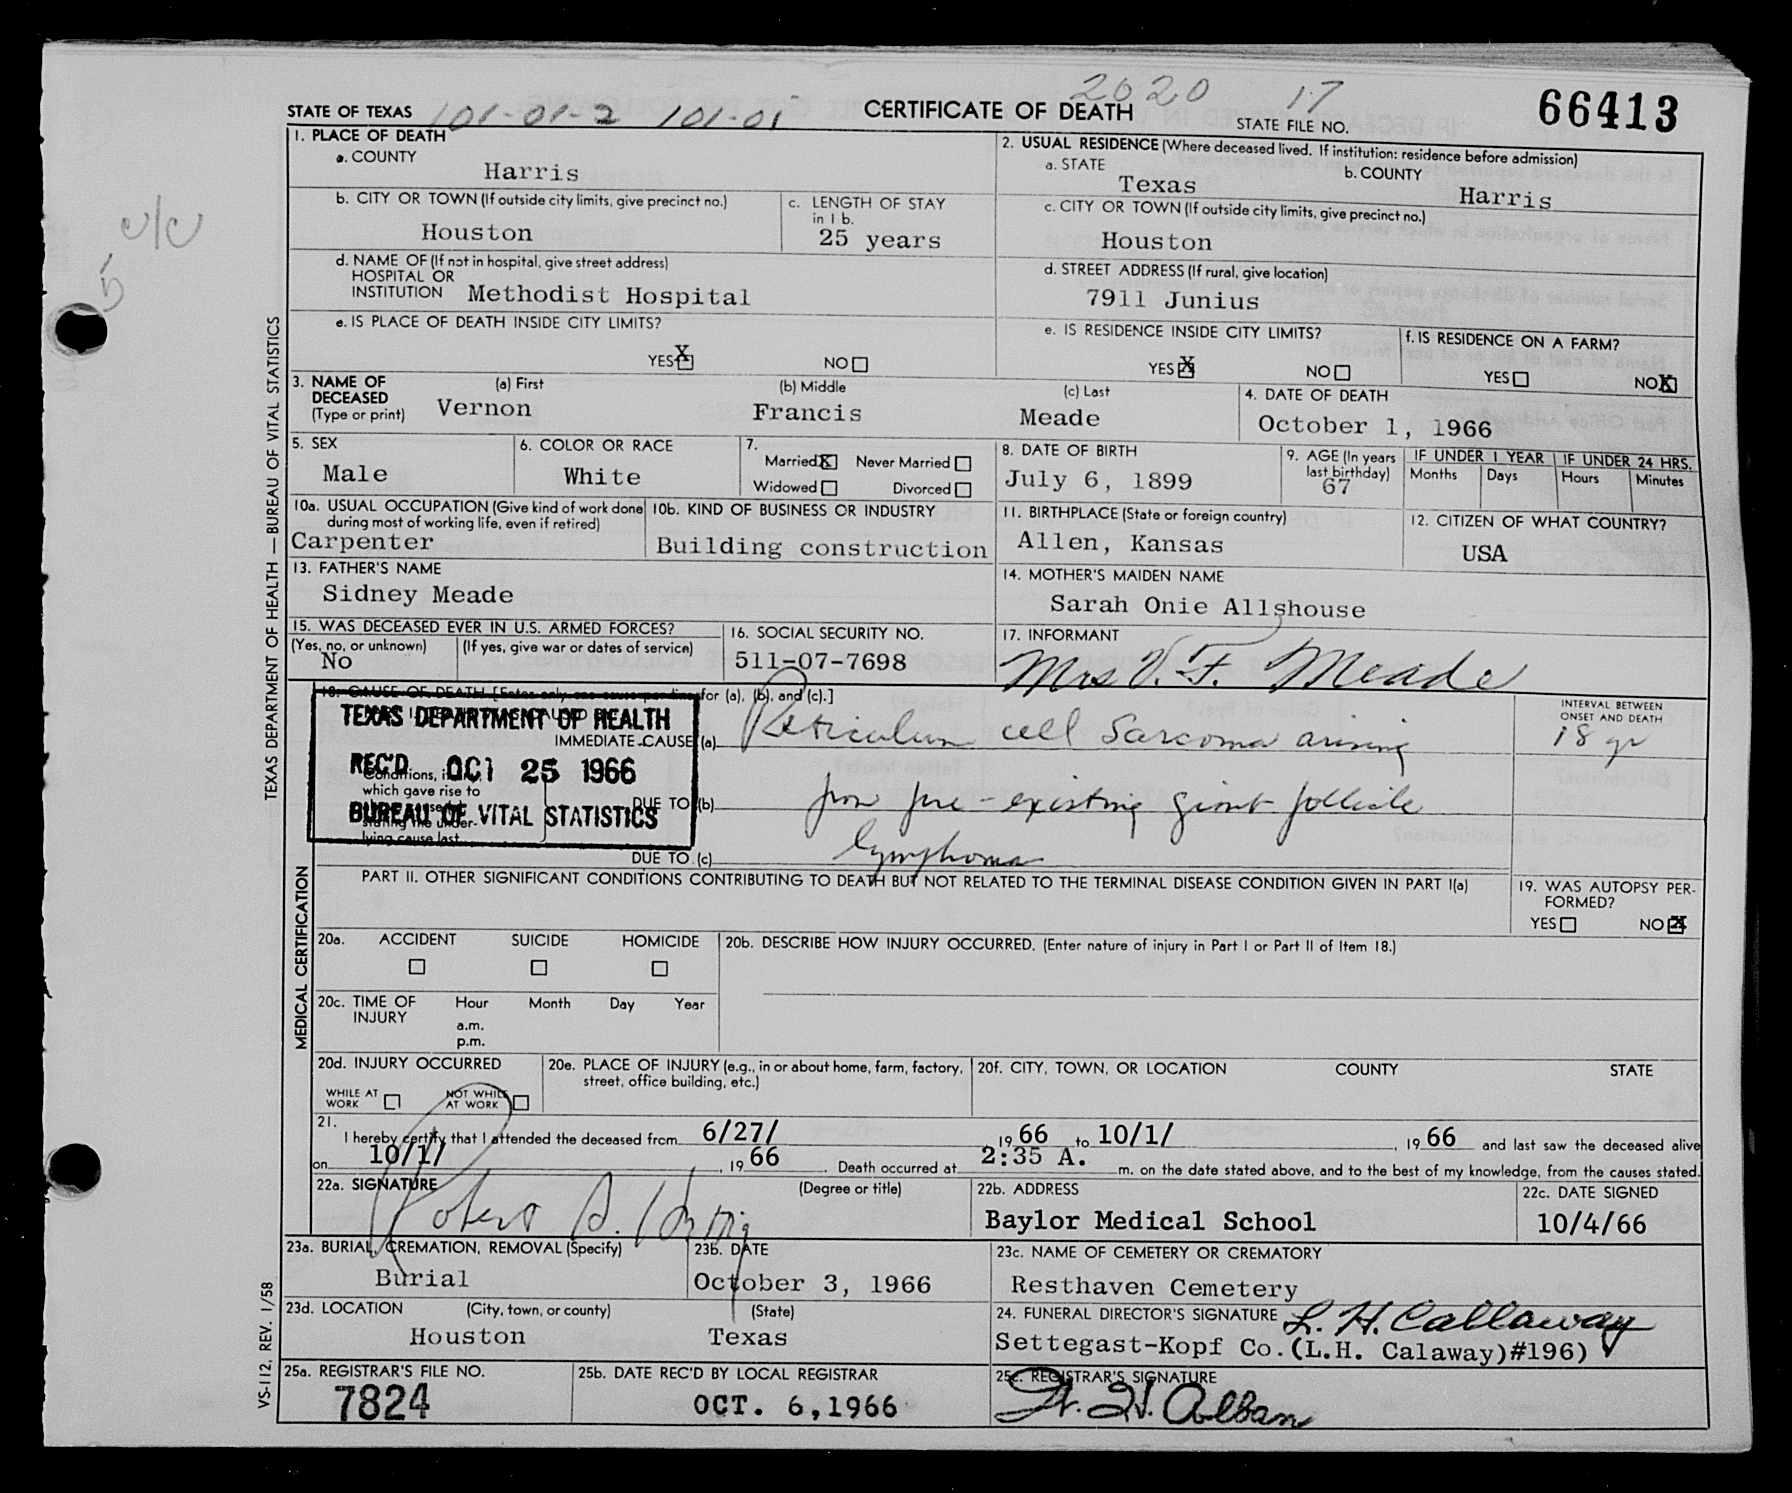 2020 17
STATE OF TEXAS 101-01-2 101-01 CERTIFICATE OF DEATH STATE FILE NO. 66413
1. PLACE OF DEATH
a. COUNTY
Harris
2. USUAL RESIDENCE (Where deceased lived. If institution: residence before admission)
a. STATE
Texas
b. COUNTY
Harris
b. CITY OR TOWN (If outside city limits, give precinct no.)
Houston
c. LENGTH OF STAY
in 1 b.
25 years
c. CITY OR TOWN (If outside city limits, give precinct no.)
Houston
d. NAME OF (If not in hospital, give street address)
HOSPITAL OR
INSTITUTION Methodist Hospital
d. STREET ADDRESS (If rural, give location)
7911 Junius
e. IS PLACE OF DEATH INSIDE CITY LIMITS?
YES X NO
e. IS RESIDENCE INSIDE CITY LIMITS?
YES X NO
f. IS RESIDENCE ON A FARM?
YES NO X
3. NAME OF
DECEASED
(Type or print)
(a) First
Vernon
(b) Middle
Francis
(c) Last
Meade
4. DATE OF DEATH
October 1, 1966
5. SEX
Male
6. COLOR OR RACE
White
7.
Married X Never Married
Widowed Divorced
8. DATE OF BIRTH
July 6, 1899
9. AGE (In years
last birthday)
67
IF UNDER 1 YEAR
Months Days
IF UNDER 24 HRS.
Hours Minutes
10a. USUAL OCCUPATION (Give kind of work done
during most of working life, even if retired)
Carpenter
10b. KIND OF BUSINESS OR INDUSTRY
Building construction
11. BIRTHPLACE (State or foreign country)
Allen, Kansas
12. CITIZEN OF WHAT COUNTRY?
USA
13. FATHER'S NAME
Sidney Meade
14. MOTHER'S MAIDEN NAME
Sarah Onie Allshouse
15. WAS DECEASED EVER IN U.S. ARMED FORCES?
(Yes, no, or unknown)
No
(If yes, give war or dates of service)
16. SOCIAL SECURITY NO.
511-07-7698
17. INFORMANT
Mrs V. F. Meade
18. CAUSE OF DEATH [Enter only one cause per line for (a), (b), and (c).]
TEXAS DEPARTMENT OF HEALTH
REC'D OCT 25 1966
BUREAU OF VITAL STATISTICS
IMMEDIATE CAUSE (a) Reticulum cell sarcoma arising
INTERVAL BETWEEN
ONSET AND DEATH
18 yr
Conditions, if
which gave rise to
stating the under-
lying cause last.
DUE TO (b) from pre-existing giant follicle
DUE TO (c) lymphoma
PART II. OTHER SIGNIFICANT CONDITIONS CONTRIBUTING TO DEATH BUT NOT RELATED TO THE TERMINAL DISEASE CONDITION GIVEN IN PART I(a)
19. WAS AUTOPSY PER-
FORMED?
YES NO X
20a. ACCIDENT SUICIDE HOMICIDE
20b. DESCRIBE HOW INJURY OCCURRED. (Enter nature of injury in Part I or Part II of Item 18.)
20c. TIME OF
INJURY
Hour Month Day Year
a.m.
p.m.
20d. INJURY OCCURRED
WHILE AT
WORK
NOT WHILE
AT WORK
20e. PLACE OF INJURY (e.g., in or about home, farm, factory,
street, office building, etc.)
20f. CITY, TOWN, OR LOCATION COUNTY STATE
21.
I hereby certify that I attended the deceased from 6/27/ 1966 to 10/1/, 1966 and last saw the deceased alive
on 10/1/, 1966. Death occurred at 2:35 A. m. on the date stated above, and to the best of my knowledge, from the causes stated.
22a. SIGNATURE (Degree or title)
22b. ADDRESS
Baylor Medical School
22c. DATE SIGNED
10/4/66
23a. BURIAL, CREMATION, REMOVAL (Specify)
Burial
23b. DATE
October 3, 1966
23c. NAME OF CEMETERY OR CREMATORY
Resthaven Cemetery
23d. LOCATION (City, town, or county) (State)
Houston Texas
24. FUNERAL DIRECTOR'S SIGNATURE L. H. Callaway
Settegast-Kopf Co.(L.H. Calaway)#196)
25a. REGISTRAR'S FILE NO.
7824
25b. DATE REC'D BY LOCAL REGISTRAR
OCT. 6, 1966
25c. REGISTRAR'S SIGNATURE
TEXAS DEPARTMENT OF HEALTH — BUREAU OF VITAL STATISTICS
MEDICAL CERTIFICATION
VS-112, REV. 1/58